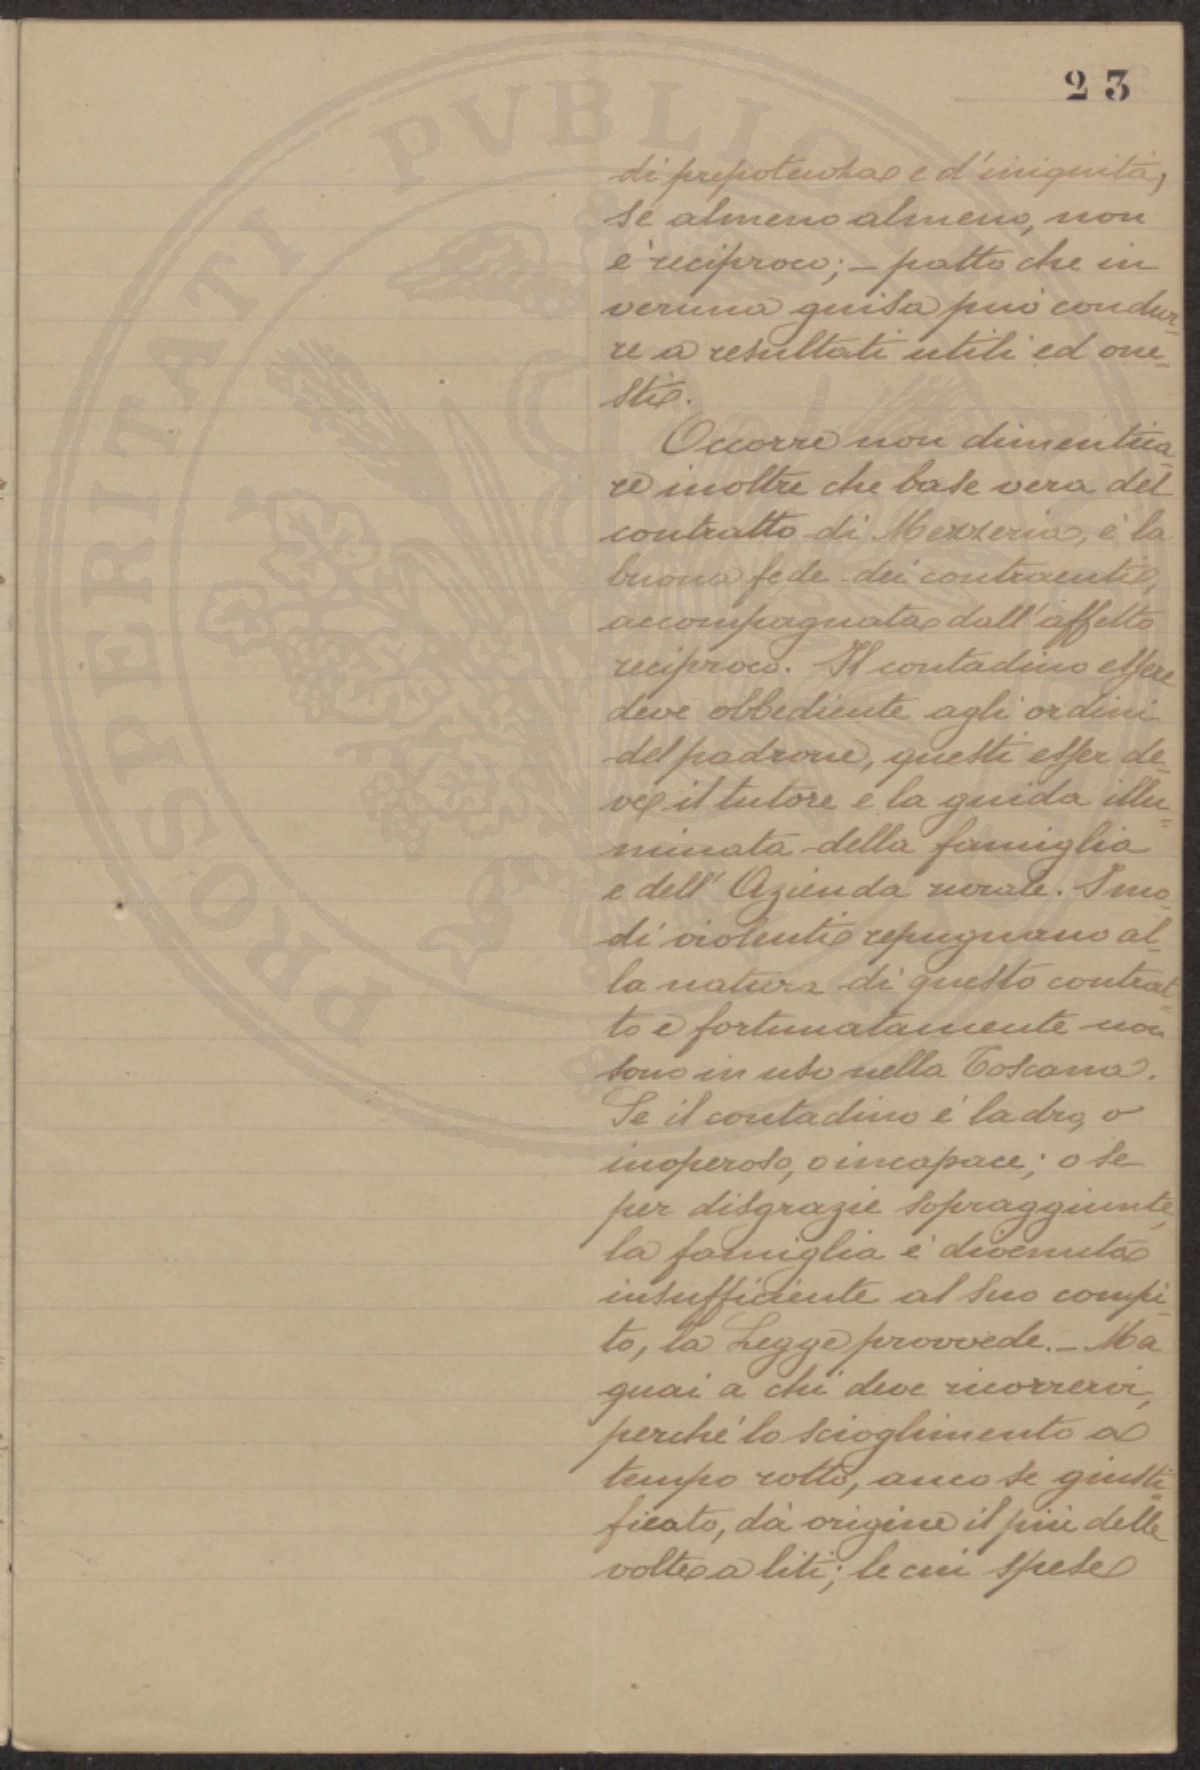 23
di prepotenza e d'iniquità,
se almeno almeno, non
è reciproco; – patto che in
veruna guisa può condur-
re a resultati utili ed one-
sti.
Occorre non dimentica-
re inoltre che base vera del
contratto di Mezzeria, è la
buona fede dei contraenti,
accompagnata dall'affetto
reciproco. Il contadino essere
deve obbediente agli ordini
del padrone, questi esser de-
ve il tutore e la guida illu-
minata della famiglia
e dell'Azienda rurale. I mo-
di violenti repugnano al-
la natura di questo contrat-
to e fortunatamente non
sono in uso nella Toscana.
Se il contadino è ladro, o
inoperoso, o incapace; o se
per disgrazie sopraggiunte,
la famiglia è divenuta
insufficiente al suo compi-
to, la Legge provvede. – Ma
guai a chi deve ricorrervi,
perché lo scioglimento a
tempo rotto, anco se giusti-
ficato, dà origine il più delle
volte a liti; le cui spese
PROSPERITATI PVBLICAE